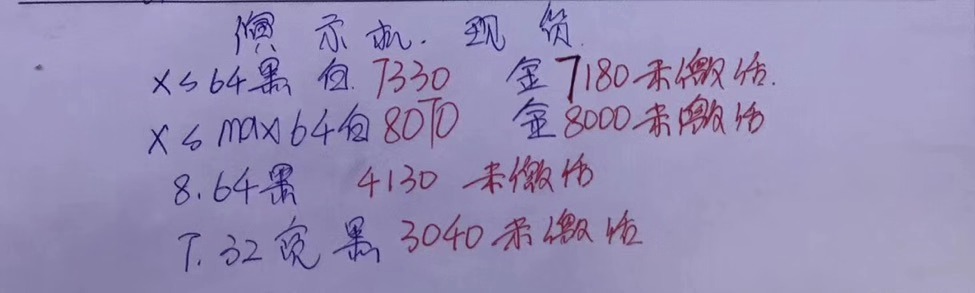 演示机.现货.
XS64黑白.7330 金7180未激活.
XSmax64白8070 金8000未激活
8.64黑 4130 未激活
7.32亮黑3040未激活